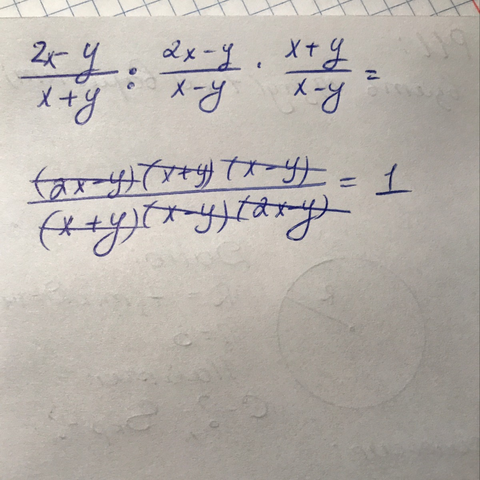 (2x-y)/(x+y) : (2x-y)/(x-y) · (x+y)/(x-y) =
((2x-y)(x+y)(x-y))/((x+y)(x-y)(2x-y)) = 1